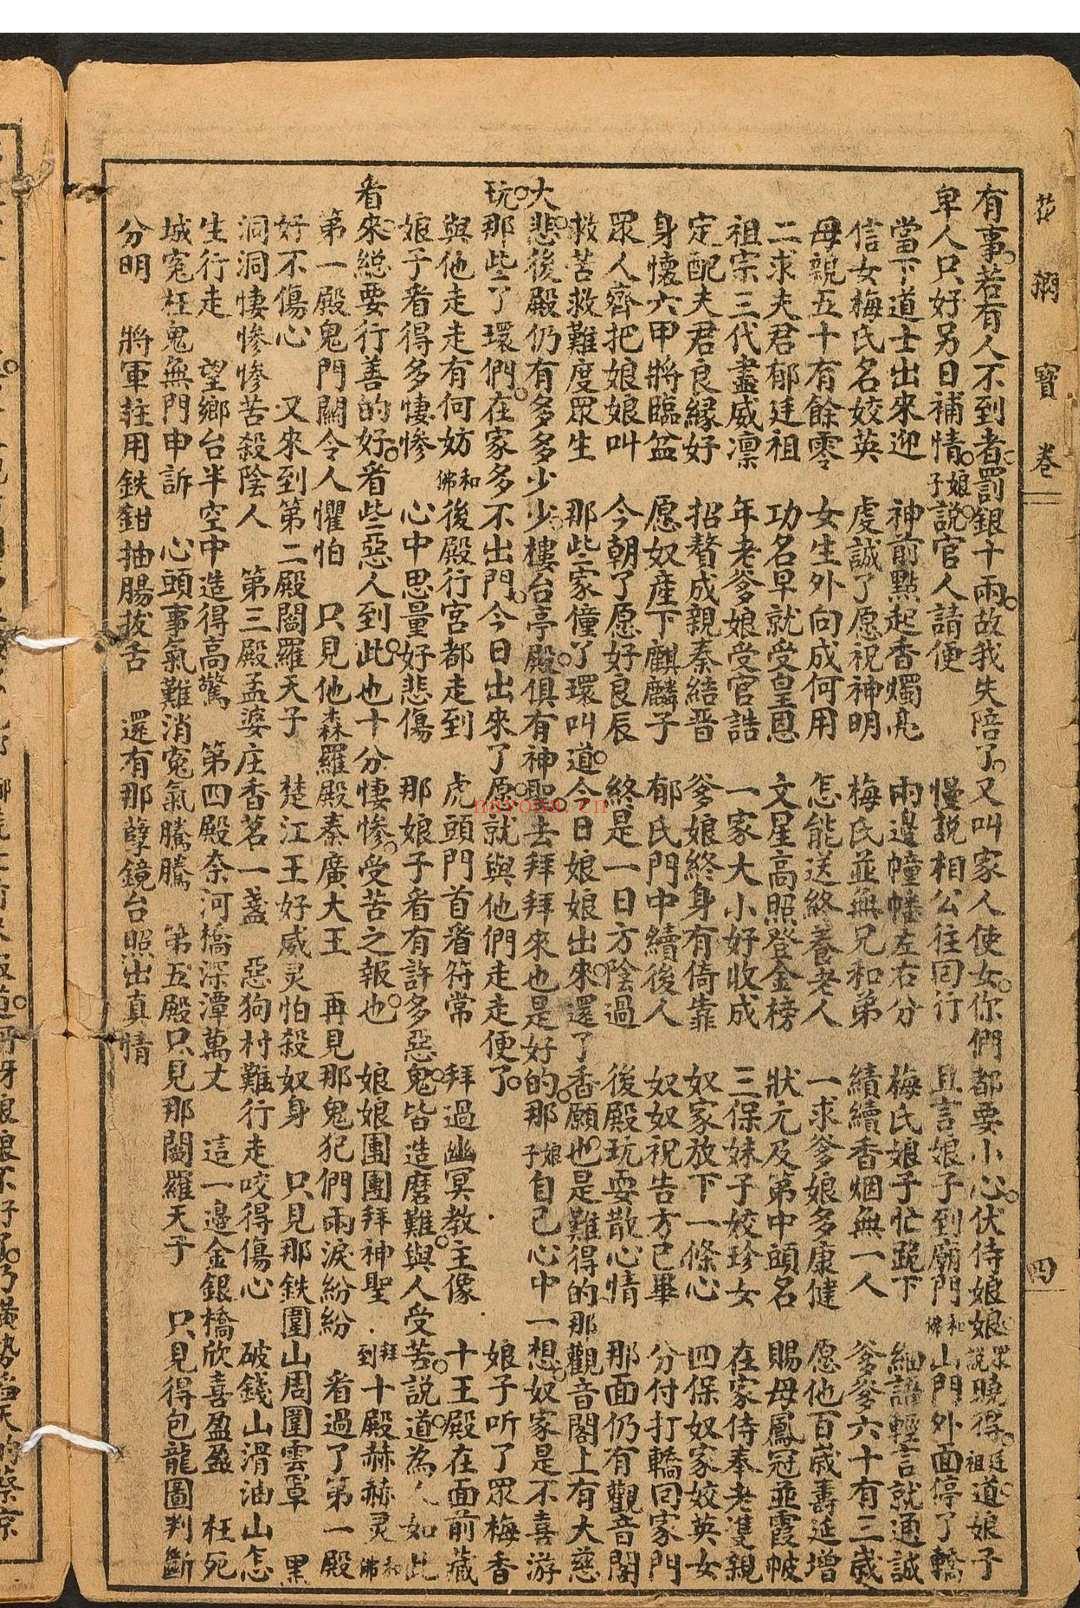 花 網 寳 卷 四
有事若有人不到者罰銀十兩故我失陪了又叫家人使女你們都要小心伏侍娘娘眾說曉得廷祖道娘子
卑人只好另日補情娘子說官人請便 慢說相公往回行 且言娘子到廟門和佛 山門外面停了轎
當下道士出來迎 神前點起香燭亮 兩邊幢幡左右分 梅氏娘子忙跪下 細語輕言就通誠
信女梅氏名姣英 虔誠了愿祝神明 梅氏並無兄和弟 續續香烟無一人 爹爹六十有三歲
母親五十有餘零 女生外向成何用 怎能送終養老人 一求爹娘多康健 愿他百歲壽延增
二求夫君郁廷祖 功名早就受皇恩 文星高照登金榜 狀元及第中頭名 賜母鳳冠並霞帔
祖宗三代盡威凛 年老爹娘受官誥 一家大小好收成 三保妹子姣珍女 在家侍奉老雙親
定配夫君良緣好 招贅成親秦結晋 爹娘終身有倚靠 奴家放下一條心 四保奴家姣英女
身懷六甲將臨盆 愿奴產下麒麟子 郁氏門中續後人 奴奴祝告方已畢 分付打轎回家門
眾人齊把娘娘叫 今朝了愿好良辰 終是一日方陰過 後殿玩耍散心情 那面仍有觀音閣
救苦救難度眾生 那些家僮了環叫道今日娘娘出來還了香願也是難得的那觀音閣上有大慈
大悲後殿仍有多多少少樓台亭殿俱有神聖去拜拜來也是好的那娘子自己心中一想奴家是不喜游
玩那些了環們在家多不出門今日出來了愿就與他們走走便了 娘子听了眾梅香
與他走走有何妨和佛 後殿行宮都走到 虎頭門首看符常 拜過幽冥教主像 十王殿在面前藏
娘子看得多悽慘 心中思量好悲傷 那娘子看有許多惡鬼皆造磨難與人受苦說道為人如此
看來總要行善的好看些惡人到此也十分悽慘受苦之報也 娘娘團團拜神聖 拜到十殿赫赫灵和佛
第一殿鬼門關令人懼怕 只見他森羅殿秦廣大王 再見那鬼犯們兩淚紛紛 看過了第一殿
好不傷心 又來到第二殿閻羅天子 楚江王好威灵怕殺奴身 只見那鉄圍山周圍雲罩 黑
洞洞悽慘慘苦殺陰人 第三殿孟婆庄香茗一盞 惡狗村難行走咬得傷心 破錢山滑油山怎
生行走 望鄉台半空中造得高驚 第四殿奈河橋深潭萬丈 這一邊金銀橋欣喜盈盈 枉死
城寃枉鬼無門申訴 心頭事氣難消寃氣騰騰 第五殿只見那閻羅天子 只見得包龍圖判斷
分明 將軍拄用鉄鉗抽腸拔舌 還有那孽鏡台照出真情
nayona.cn